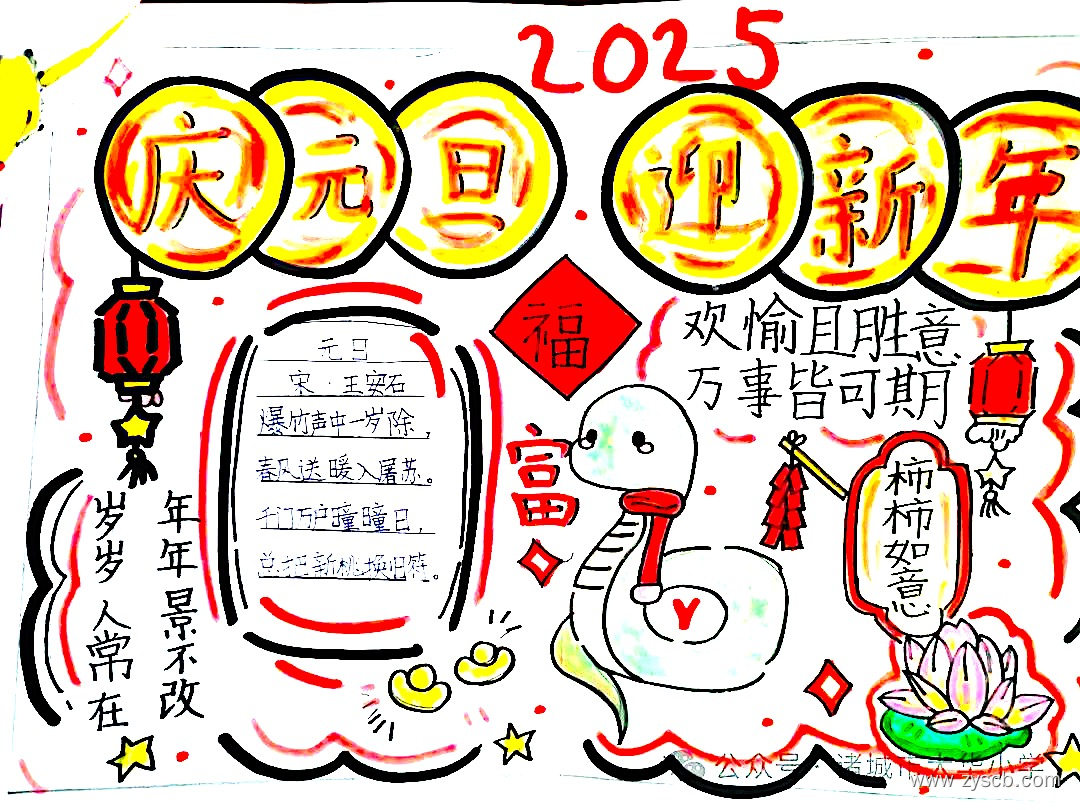 2025
庆元旦 迎新年
福
欢愉且胜意
万事皆可期
元日
宋·王安石
爆竹声中一岁除，
春风送暖入屠苏。
千门万户曈曈日，
总把新桃换旧符。
富
柿柿如意
年年景不改
岁岁人常在
公众号 诸城市大华小学
www.zyscb.com